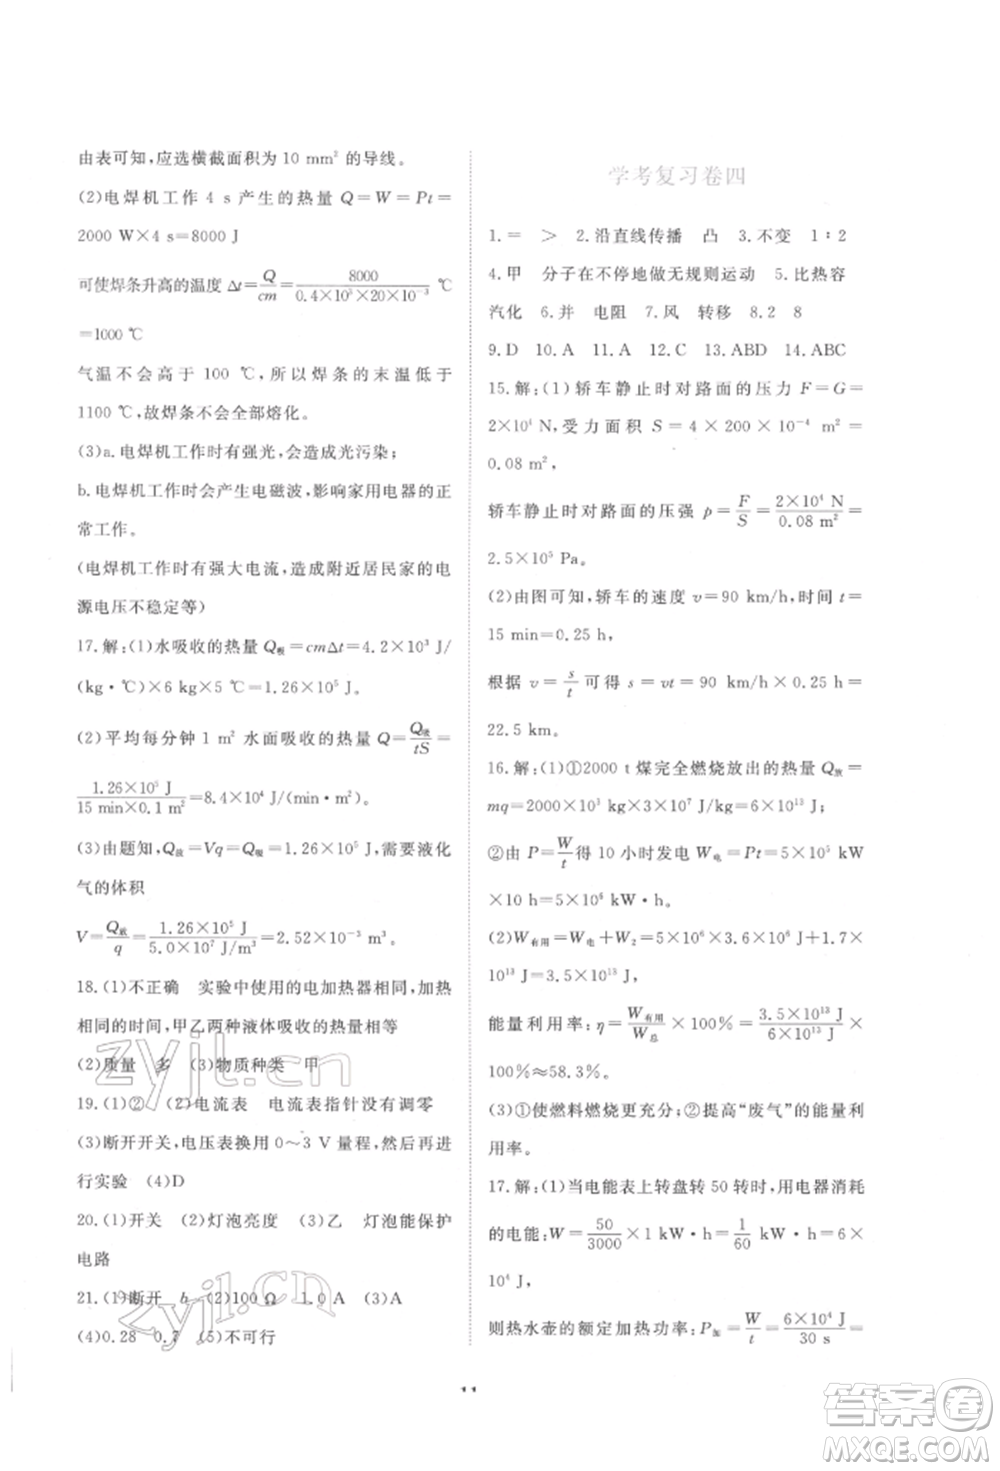 由表可知,应选横截面积为 10 mm² 的导线。
(2)电焊机工作 4 s 产生的热量 Q=W=Pt=
2000 W×4 s=8000 J
可使焊条升高的温度 Δt=Q/cm=8000/(0.4×10³×20×10⁻³) ℃
=1000 ℃
气温不会高于 100 ℃,所以焊条的末温低于
1100 ℃,故焊条不会全部熔化。
(3)a.电焊机工作时有强光,会造成光污染;
b.电焊机工作时会产生电磁波,影响家用电器的正
常工作。
(电焊机工作时有强大电流,造成附近居民家的电
源电压不稳定等)
17.解:(1)水吸收的热量 Q吸=cmΔt=4.2×10³ J/
(kg·℃)×6 kg×5 ℃=1.26×10⁵ J。
(2)平均每分钟 1 m² 水面吸收的热量 Q=Q吸/tS=
1.26×10⁵ J/(15 min×0.1 m²)=8.4×10⁴ J/(min·m²)。
(3)由题知,Q放=Vq=Q吸=1.26×10⁵ J,需要液化
气的体积
V=Q放/q=1.26×10⁵ J/(5.0×10⁷ J/m³)=2.52×10⁻³ m³。
18.(1)不正确 实验中使用的电加热器相同,加热
相同的时间,甲乙两种液体吸收的热量相等
(2)质量 多 (3)物质种类 甲
19.(1)② (2)电流表 电流表指针没有调零
(3)断开开关,电压表换用 0~3 V 量程,然后再进
行实验 (4)D
20.(1)开关 (2)灯泡亮度 (3)乙 灯泡能保护
电路
21.(1)断开 b (2)100 Ω 1.0 A (3)A
(4)0.28 0.7 (5)不可行
学考复习卷四
1.= > 2.沿直线传播 凸 3.不变 1∶2
4.甲 分子在不停地做无规则运动 5.比热容
汽化 6.并 电阻 7.风 转移 8.2 8
9.D 10.A 11.A 12.C 13.ABD 14.ABC
15.解:(1)轿车静止时对路面的压力 F=G=
2×10⁴ N,受力面积 S=4×200×10⁻⁴ m²=
0.08 m²,
轿车静止时对路面的压强 p=F/S=2×10⁴ N/0.08 m²=
2.5×10⁵ Pa。
(2)由图可知,轿车的速度 v=90 km/h,时间 t=
15 min=0.25 h,
根据 v=s/t 可得 s=vt=90 km/h×0.25 h=
22.5 km。
16.解:(1)①2000 t 煤完全燃烧放出的热量 Q放=
mq=2000×10³ kg×3×10⁷ J/kg=6×10¹³ J;
②由 P=W/t得 10 小时发电 W电=Pt=5×10⁵ kW
×10 h=5×10⁶ kW·h。
(2)W有用=W电+W₂=5×10⁶×3.6×10⁶ J+1.7×
10¹³ J=3.5×10¹³ J,
能量利用率:η=W有用/W总×100%=3.5×10¹³ J/6×10¹³ J×
100%≈58.3%。
(3)①使燃料燃烧更充分;②提高“废气”的能量利
用率。
17.解:(1)当电能表上转盘转 50 转时,用电器消耗
的电能:W=50/3000×1 kW·h=1/60 kW·h=6×
10⁴ J,
则热水壶的额定加热功率:P加=W/t=6×10⁴ J/30 s=
11
zyjl.cn
zyjl.cn
答案圈
MXQE.COM